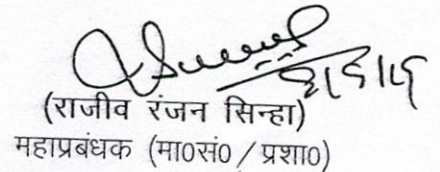 (राजीव रंजन सिन्हा)
महाप्रबंधक (मा0सं0/प्रशा0)